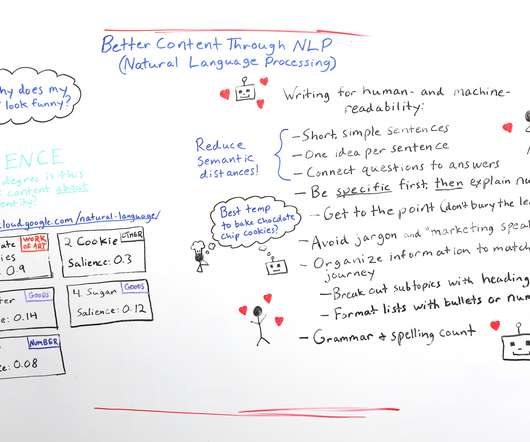 Better Content Through NLP
(Natural Language Processing)
hy does my
look funny?
ENCE
degree is this
content about
entity?
cloud.google.com/natural-language/
ate
ies
0.9
WORK OF ART
2 Cookie
OTHER
Salience: 0.3
ter
GOODS
ce: 0.14
4. Sugar
GOODS
Salience: 0.12
NUMBER
0.08
Reduce
Semantic
distances!
Best temp
to bake chocolate
chip cookies?
Writing for human- and machine-
readability:
- Short, simple sentences
- One idea per sentence
- Connect questions to answers
- Be specific first, then explain nu
- Get to the point (don't bury the le
- Avoid jargon and "marketing speak
- Organize information to match
journey
- Break out subtopics with heading
- Format lists with bullets or num
- Grammar & spelling count